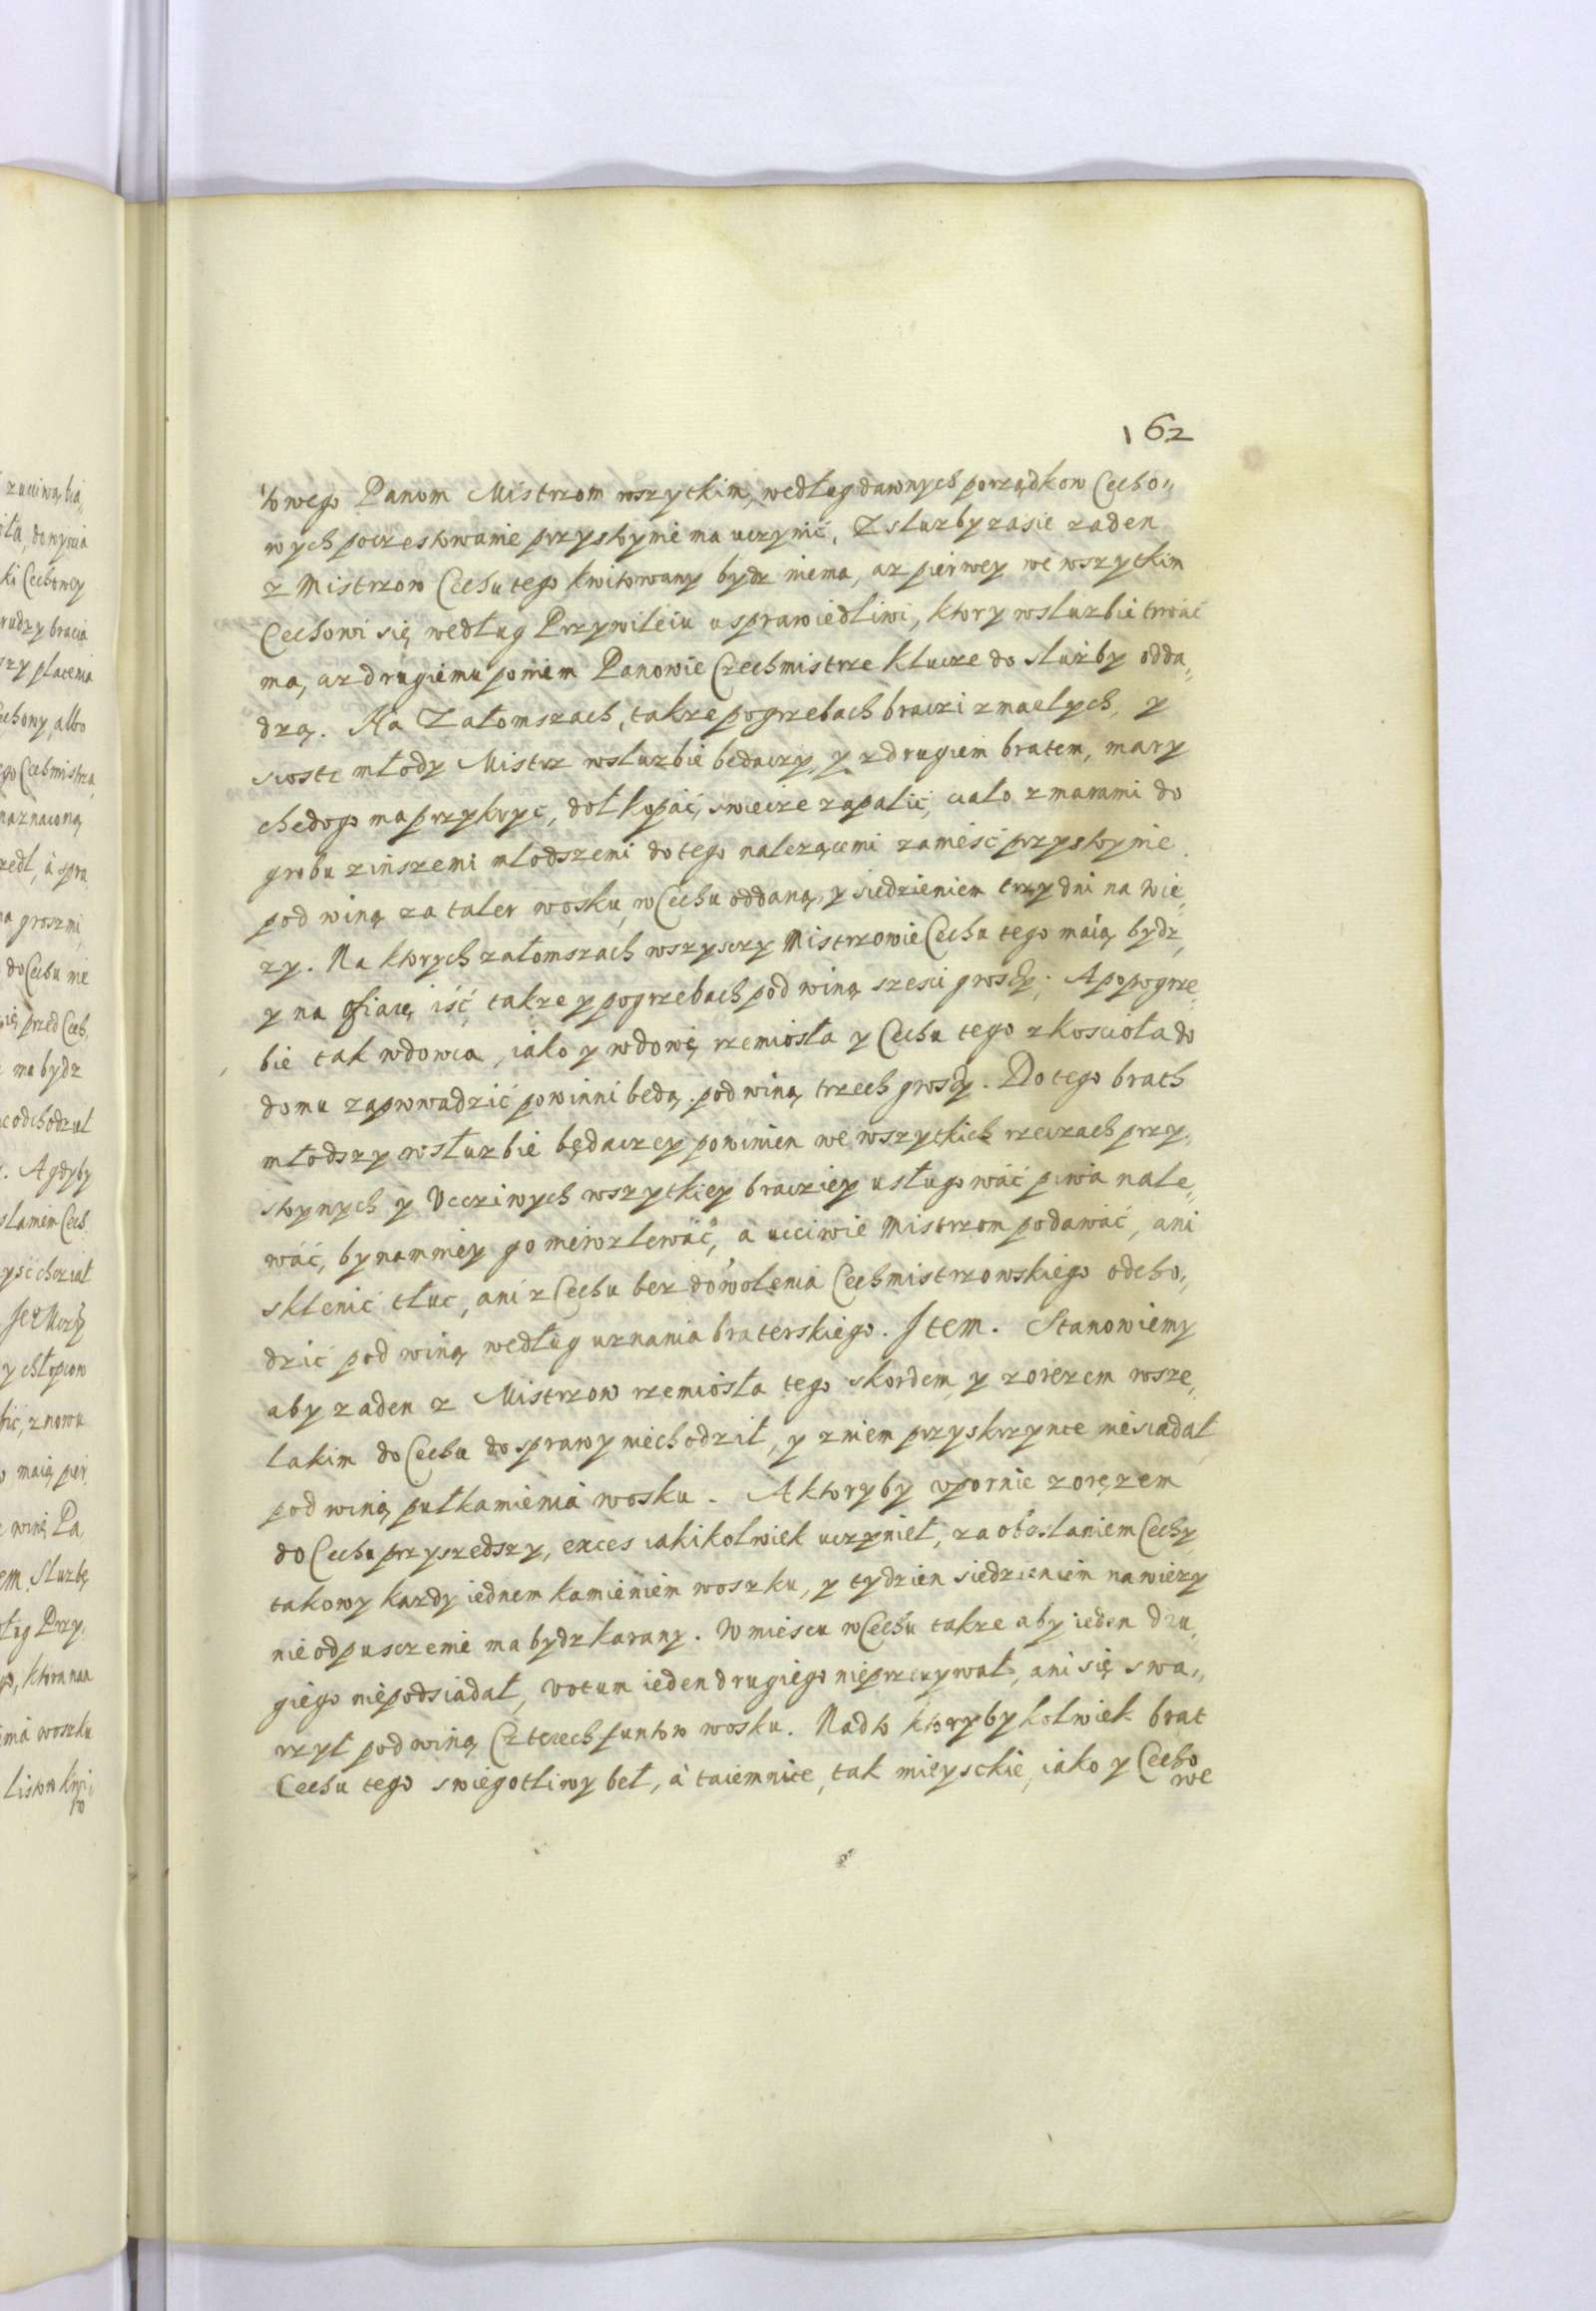 162
towego Panom Mistrzom wszytkim, według dawnych porządkow Cecho„
wych poczestowanie przystoyne ma uczynić, Z służby zasie zaden
z Mistrzow Cechu tego kwitowany bydz niema, az pierwey we wszytkim
Cechowi się według Przywileiu usprawiedliwi, ktory wsluzbie trwać
ma, az drugiemu po niem Panowie Czechmistrze klucze do służby odda„
dzą. Na Załomszach, takze pogrzebach braczi zmaełych, y
siostr młody Mistrz wsłuzbie będaczy, y zdrugiem bratem, mary
chędogo ma przykryc, doł kopać, swiecze zapalić, ciało z marami do
grobu zinszemi młodszemi do tego nalezącemi zaniesć przystoynie
pod winą za taler wosku, w Cechu oddaną, y siedzieniem trzy dni na wie„
zy. Na ktorych załomszach wszysczy Mistrzowie Cechu tego maią bydz
y na ofiarę iść takze y pogrzebach pod winą szesci groszy. A po pogrze„
bie tak wdowca, iako y wdowę rzemiosła y Cechu tego z koscioła do
domu zaprowadzić powinni będą, pod winą trzech groszy. Do tego brath
młodszy wsłuzbie będączey powinien we wszytkich rzeczach przy„
stoynych y Ucziwych wszytkiey braciey usługować piwa nale„
wać, bynamniey go nierozlewać, à ucciwie Mistrzom podawać, ani
sklenic tłuc, ani z Cechu bez dowolenia Cechmistrzowskiego odcho„
dzić pod winą według uznania braterskiego. Item. Stanowiemy
aby zaden z Mistrzow rzemiosła tego skordem y zoręzem wsze„
lakim do Cechu do sprawy niechodził, y zniem przy skrzynce niesiadał
pod winą pułkamienia wosku. A ktoryby upornie zoręzem
do Cechu przyszedszy, exces iakikolwiek uczynieł, za obesłaniem Cechy
takowy kazdy iednem kamieniem woszku, y tydzien siedzieniem na wiezy
nie odpusczenie ma bydz karany. W miescu w Cechu takze aby ieden dru„
giego niepodsiadał, votum ieden drugiego nieprzerywał, ani się swa„
rzył pod winą Czterech funtow wosku. Nadto ktorybykolwiek brat
Cechu tego swiegotliwy beł, à taiemnice, tak mieyskie, iako y Cecho
we